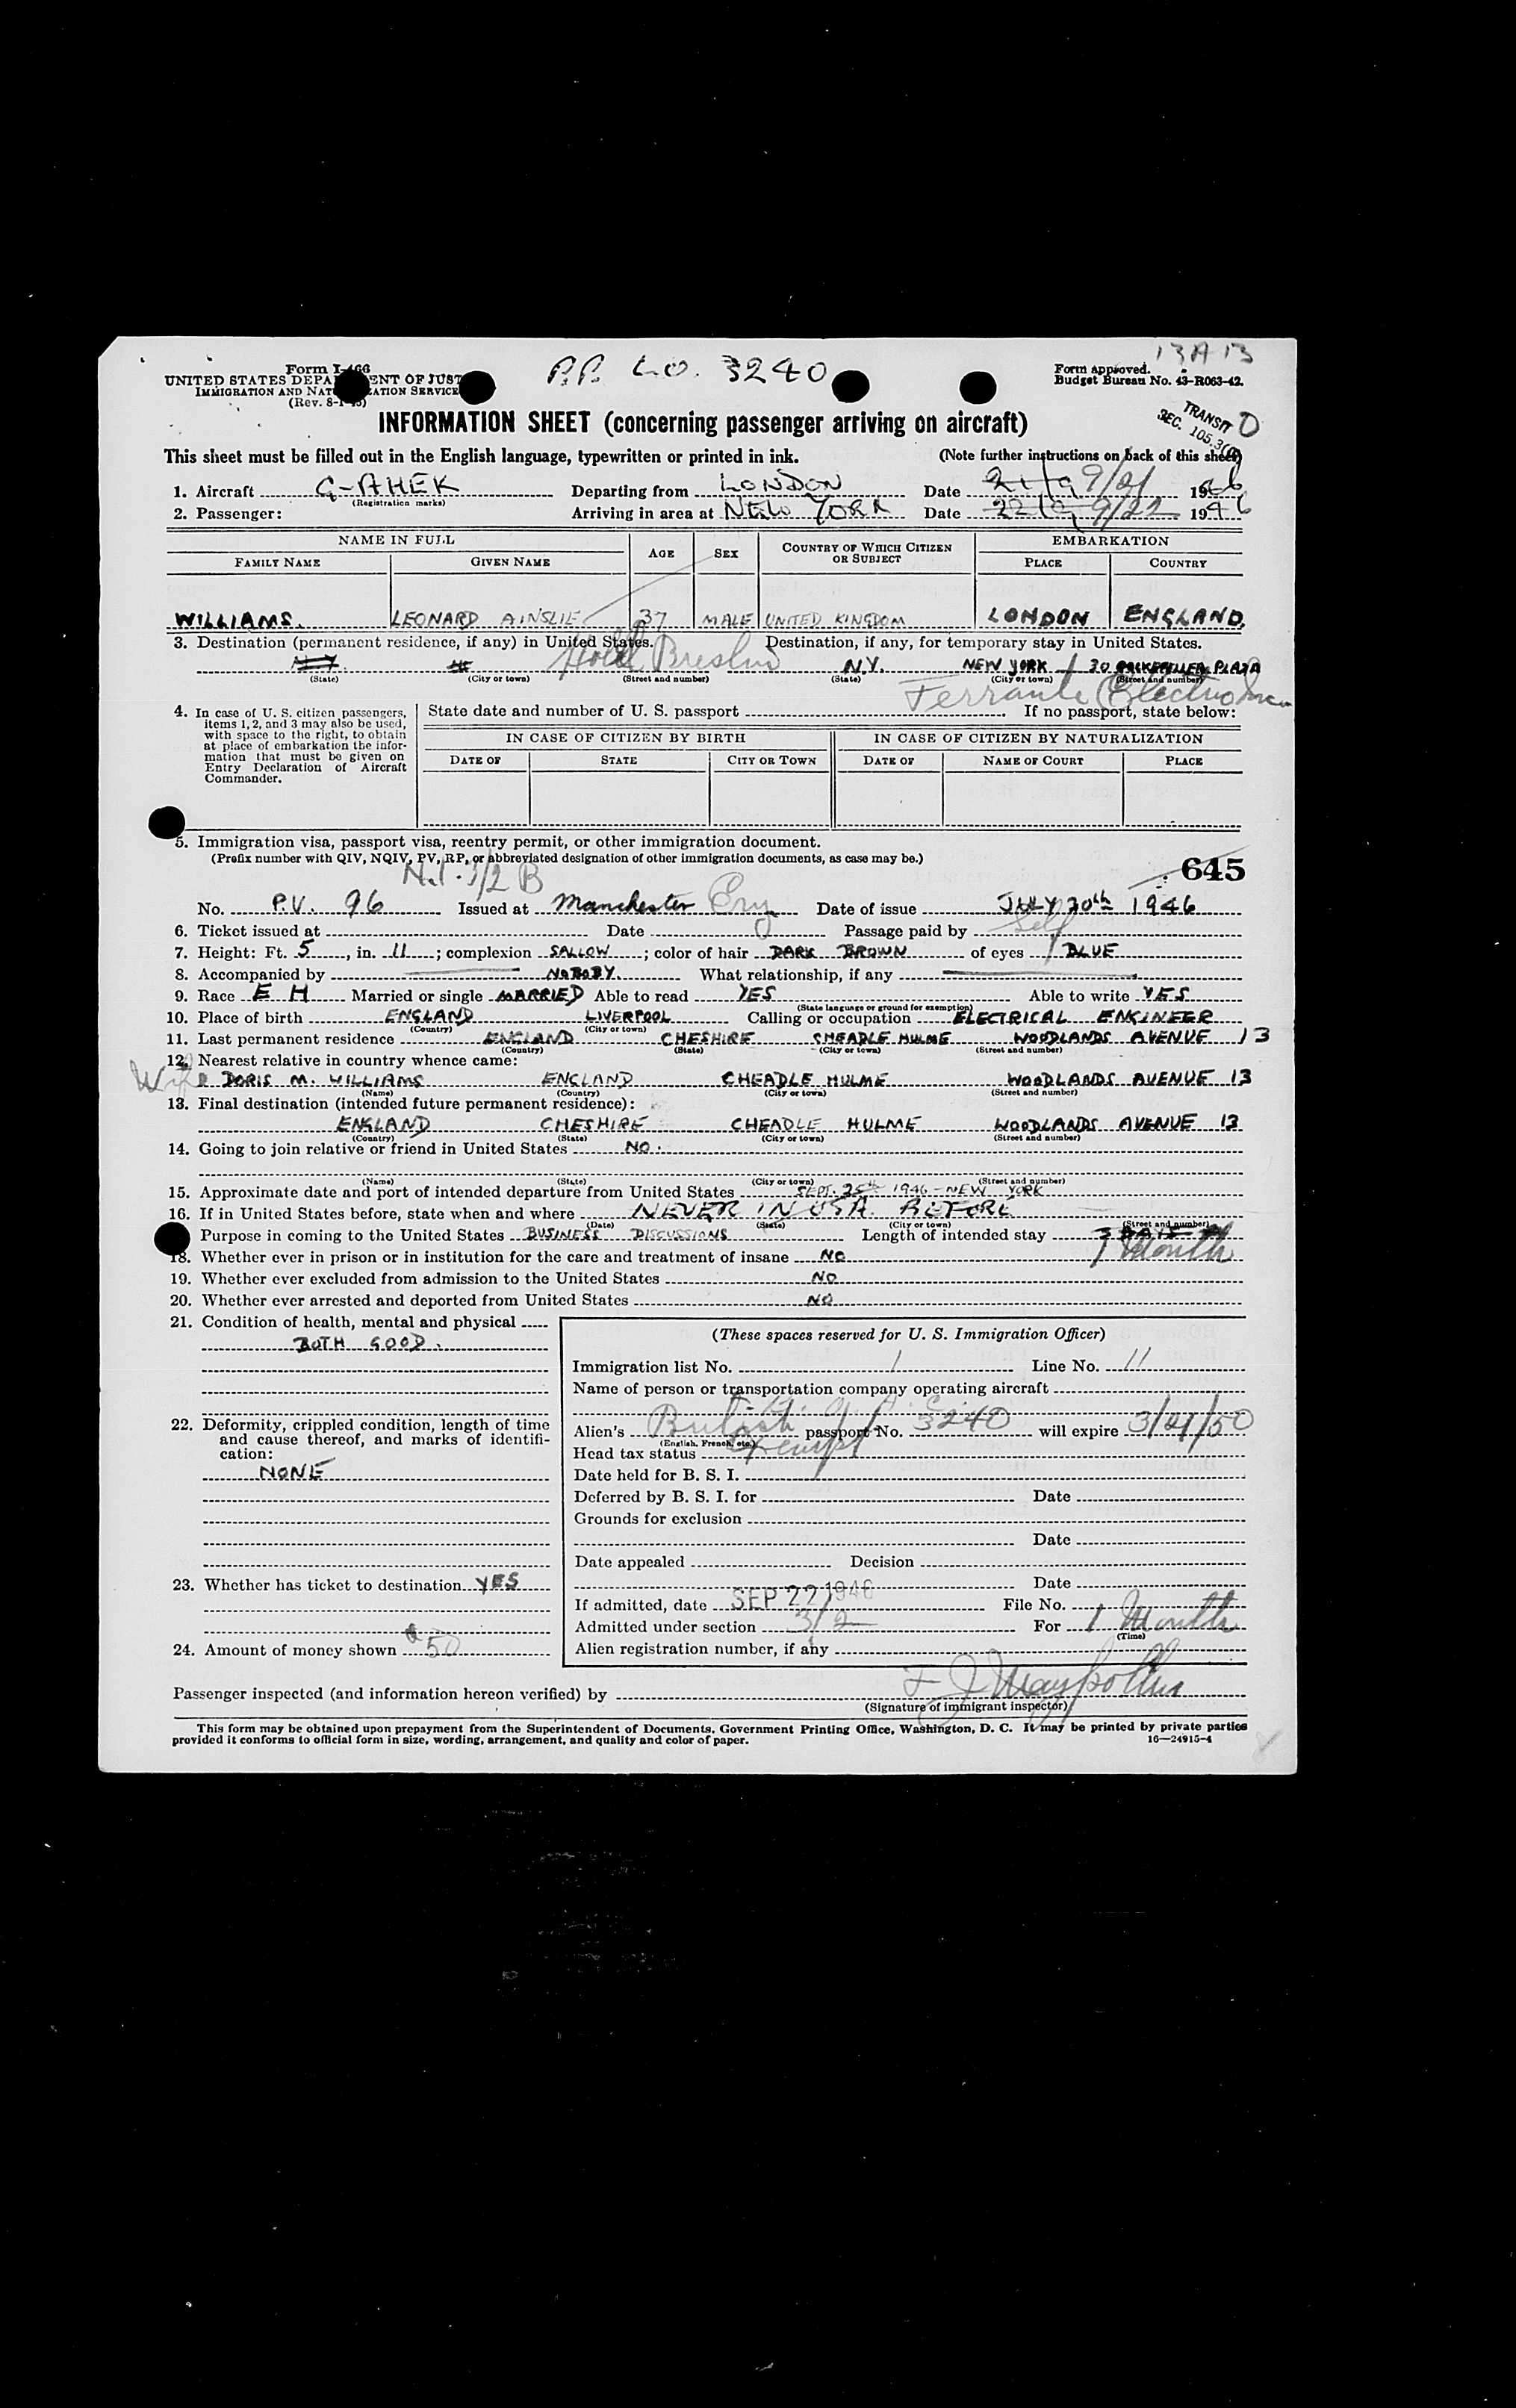 13 A 13
Form I-466
UNITED STATES DEPA ENT OF JUST
IMMIGRATION AND NAT ATION SERVICE
(Rev. 8-1-45)
P.P. Lo. 3240
Form approved.
Budget Bureau No. 43-R063-42.
TRANSIT
SEC. 105.3(
D
INFORMATION SHEET (concerning passenger arriving on aircraft)
This sheet must be filled out in the English language, typewritten or printed in ink. (Note further instructions on back of this sheet)
1. Aircraft G-AHEK Departing from LONDON Date 21/9 9/21 1946
(Registration marks)
2. Passenger: Arriving in area at NEW YORK Date 22/9 9/22 1946
NAME IN FULL AGE SEX COUNTRY OF WHICH CITIZEN OR SUBJECT EMBARKATION
FAMILY NAME GIVEN NAME PLACE COUNTRY
WILLIAMS. LEONARD AINSLIE 37 MALE UNITED KINGDOM LONDON ENGLAND.
3. Destination (permanent residence, if any) in United States. Destination, if any, for temporary stay in United States.
Hotel Breslin N.Y. NEW YORK 30 ROCKEFELLER PLAZA
(State) (City or town) (Street and number) (State) (City or town) (Street and number)
Ferrante (Electric Inc
4. In case of U. S. citizen passengers, items 1, 2, and 3 may also be used, with space to the right, to obtain at place of embarkation the information that must be given on Entry Declaration of Aircraft Commander.
State date and number of U. S. passport If no passport, state below:
IN CASE OF CITIZEN BY BIRTH IN CASE OF CITIZEN BY NATURALIZATION
DATE OF STATE CITY OR TOWN DATE OF NAME OF COURT PLACE
5. Immigration visa, passport visa, reentry permit, or other immigration document.
(Prefix number with QIV, NQIV, PV, RP, or abbreviated designation of other immigration documents, as case may be.)
645
N.I. 3/2 B
No. P.V. 96 Issued at Manchester Eng Date of issue JULY 30th 1946
6. Ticket issued at Date Passage paid by Self
7. Height: Ft. 5, in. 11; complexion SALLOW; color of hair DARK BROWN of eyes BLUE
8. Accompanied by NOBODY. What relationship, if any
9. Race E H Married or single MARRIED Able to read YES Able to write YES
(State language or ground for exemption)
10. Place of birth ENGLAND LIVERPOOL Calling or occupation ELECTRICAL ENGINEER
(Country) (City or town)
11. Last permanent residence ENGLAND CHESHIRE CHEADLE HULME WOODLANDS AVENUE 13
(Country) (State) (City or town) (Street and number)
12. Nearest relative in country whence came:
Wife DORIS M. WILLIAMS ENGLAND CHEADLE HULME WOODLANDS AVENUE 13
(Name) (Country) (City or town) (Street and number)
13. Final destination (intended future permanent residence):
ENGLAND CHESHIRE CHEADLE HULME WOODLANDS AVENUE 13
(Country) (State) (City or town) (Street and number)
14. Going to join relative or friend in United States NO.
(Name) (State) (City or town) (Street and number)
15. Approximate date and port of intended departure from United States SEPT. 25th 1946 - NEW YORK
16. If in United States before, state when and where NEVER IN USA BEFORE
(Date) (State) (City or town) (Street and number)
Purpose in coming to the United States BUSINESS DISCUSSIONS Length of intended stay 3 DAYS
1 Month
18. Whether ever in prison or in institution for the care and treatment of insane NO
19. Whether ever excluded from admission to the United States NO
20. Whether ever arrested and deported from United States NO
21. Condition of health, mental and physical
BOTH GOOD.
22. Deformity, crippled condition, length of time and cause thereof, and marks of identification:
NONE
23. Whether has ticket to destination YES
24. Amount of money shown 50
(These spaces reserved for U. S. Immigration Officer)
Immigration list No. 1 Line No. 11
Name of person or transportation company operating aircraft
Alien's British passport No. 3240 will expire 3/21/50
(English, French, etc.)
Head tax status Exempt
Date held for B. S. I.
Deferred by B. S. I. for Date
Grounds for exclusion
Date
Date appealed Decision
Date
If admitted, date SEP 22 1946 File No.
Admitted under section 3/2 For 1 Month
(Time)
Alien registration number, if any
Passenger inspected (and information hereon verified) by
(Signature of immigrant inspector)
This form may be obtained upon prepayment from the Superintendent of Documents, Government Printing Office, Washington, D. C. It may be printed by private parties
provided it conforms to official form in size, wording, arrangement, and quality and color of paper. 16—24915-4